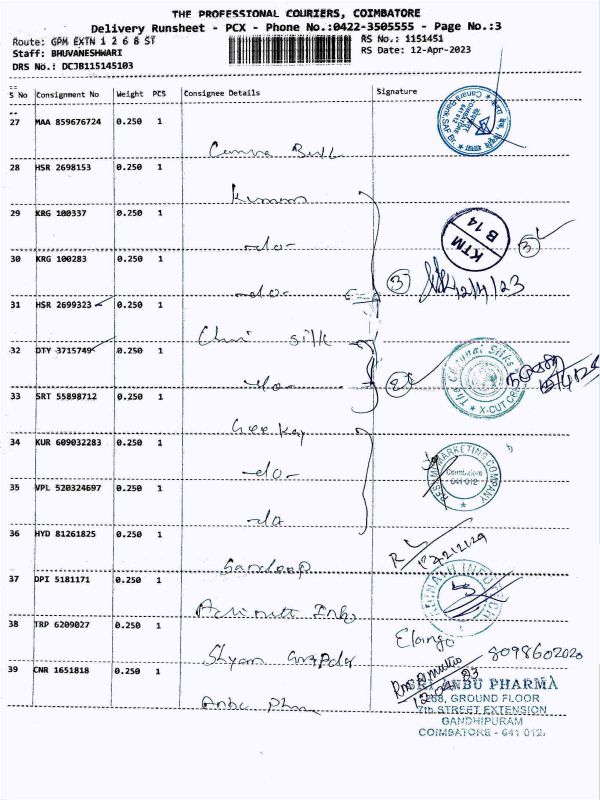 THE PROFESSIONAL COURIERS, COIMBATORE
Delivery Runsheet - PCX - Phone No.:0422-3505555 - Page No.:3
Route: GPM EXTN 1 2 6 8 ST
RS No.: 1151451
Staff: BHUVANESHWARI
RS Date: 12-Apr-2023
DRS No.: DCJB115145103
S No Consignment No Weight PCS Consignee Details Signature
27 MAA 859676724 0.250 1
28 HSR 2698153 0.250 1
29 KRG 100337 0.250 1
-do-
KTM
B 14
3
30 KRG 100283 0.250 1
-do-
3
12/4/23
31 HSR 2699323 0.250 1
silk
32 DTY 3715749 0.250 1
-do-
2
The Chennai Silks
* X-CUT
33 SRT 55898712 0.250 1
34 KUR 609032283 0.250 1
-do-
MARKETING COMPANY
Coimbatore
641 012
35 VPL 520324697 0.250 1
-do
36 HYD 81261825 0.250 1
37 DPI 5181171 0.250 1
38 TRP 6209027 0.250 1
Elango
Shyam
8098602020
39 CNR 1651818 0.250 1
12.04.23
SRI ANBU PHARMA
268, GROUND FLOOR
7th STREET EXTENSION
GANDHIPURAM
COIMBATORE - 641 012.